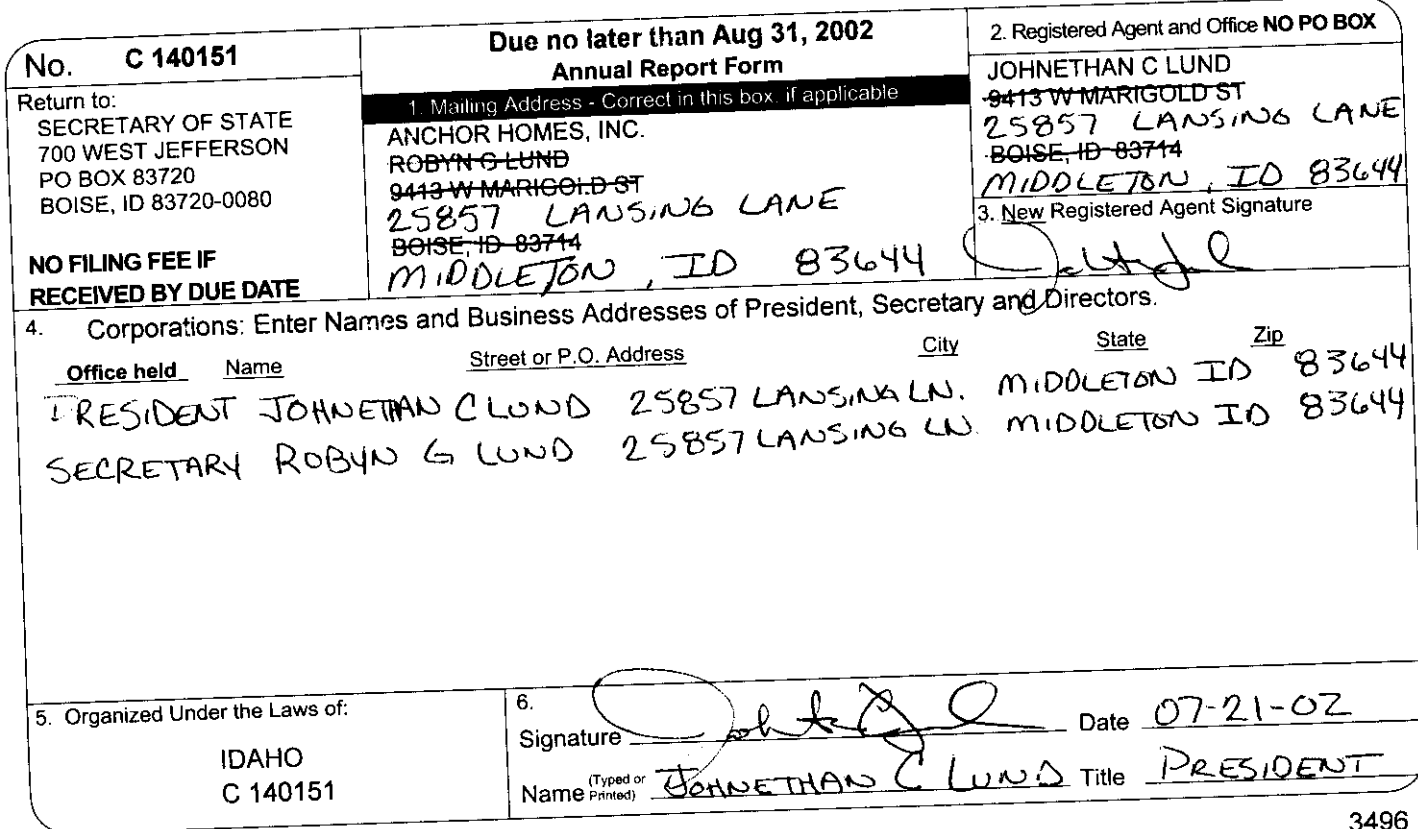 No. C 140151
Return to:
SECRETARY OF STATE
700 WEST JEFFERSON
PO BOX 83720
BOISE, ID 83720-0080
NO FILING FEE IF
RECEIVED BY DUE DATE
Due no later than Aug 31, 2002
Annual Report Form
1. Mailing Address - Correct in this box, if applicable
ANCHOR HOMES, INC.
ROBYN G LUND
9413 W MARIGOLD ST
25857 LANSING LANE
BOISE, ID 83714
MIDDLETON, ID 83644
2. Registered Agent and Office NO PO BOX
JOHNETHAN C LUND
9413 W MARIGOLD ST
25857 LANSING LANE
BOISE, ID 83714
MIDDLETON, ID 83644
3. New Registered Agent Signature
4. Corporations: Enter Names and Business Addresses of President, Secretary and Directors.
Office held Name Street or P.O. Address City State Zip
PRESIDENT JOHNETHAN C LUND 25857 LANSING LN. MIDDLETON ID 83644
SECRETARY ROBYN G LUND 25857 LANSING LN. MIDDLETON ID 83644
5. Organized Under the Laws of:
IDAHO
C 140151
6.
Signature Date 07-21-02
Name (Typed or Printed) JOHNETHAN C LUND Title PRESIDENT
3496